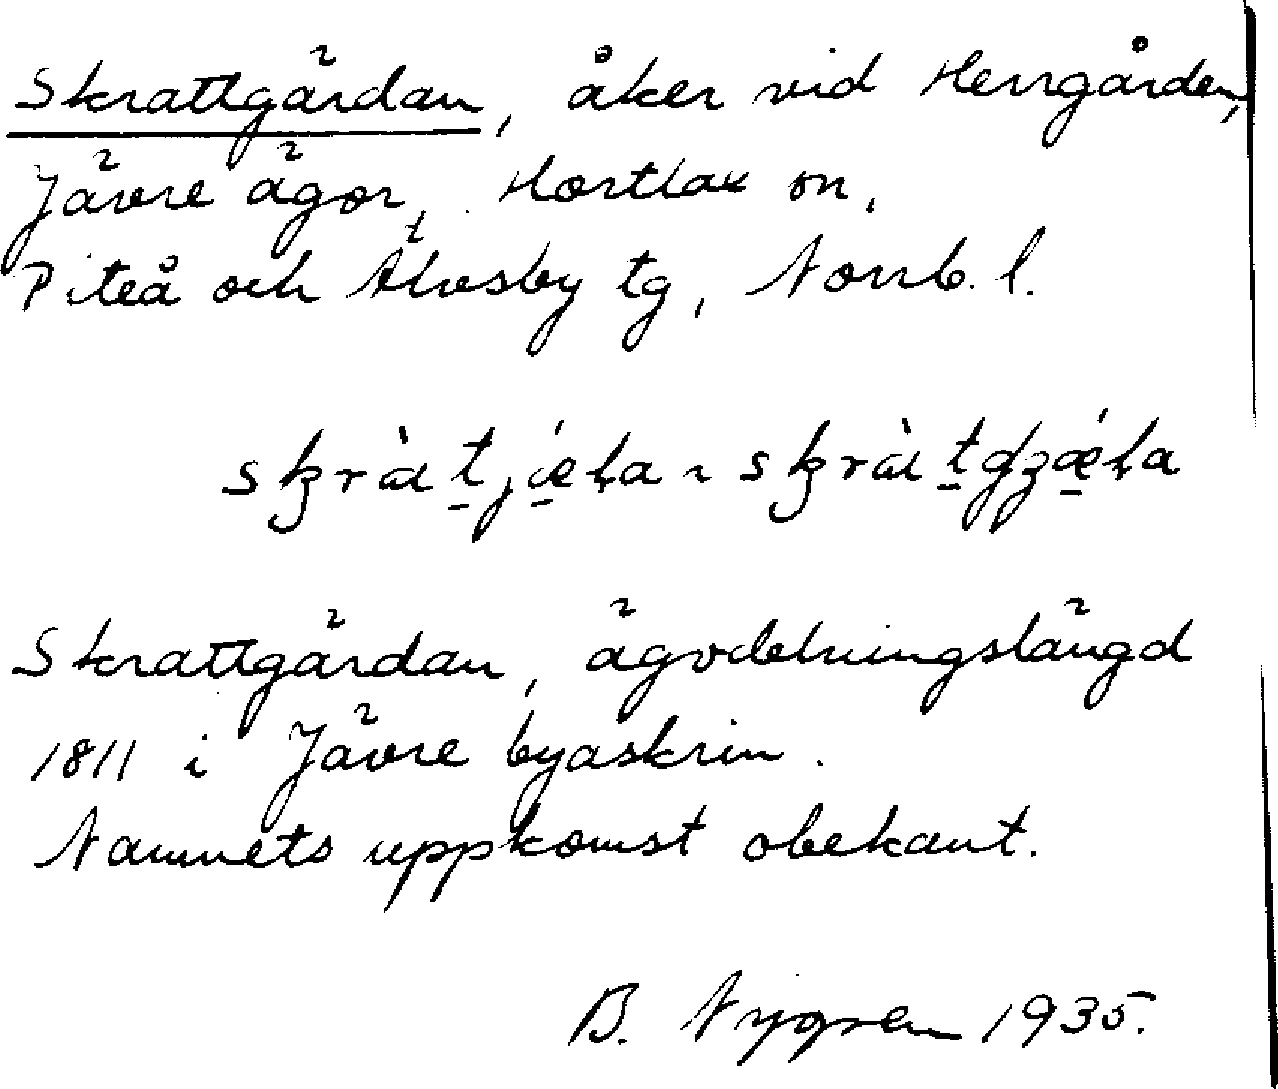 Skrattgärdan, åker vid Herrgården,
Jävre ägor, Hortlax sn,
Piteå och Älvsby tg, Norrb. l.
Skrattgärdan, ägodelningslängd
1811 i Jävre byaskrin.
Namnets uppkomst obekant.
B. Nygren 1935.